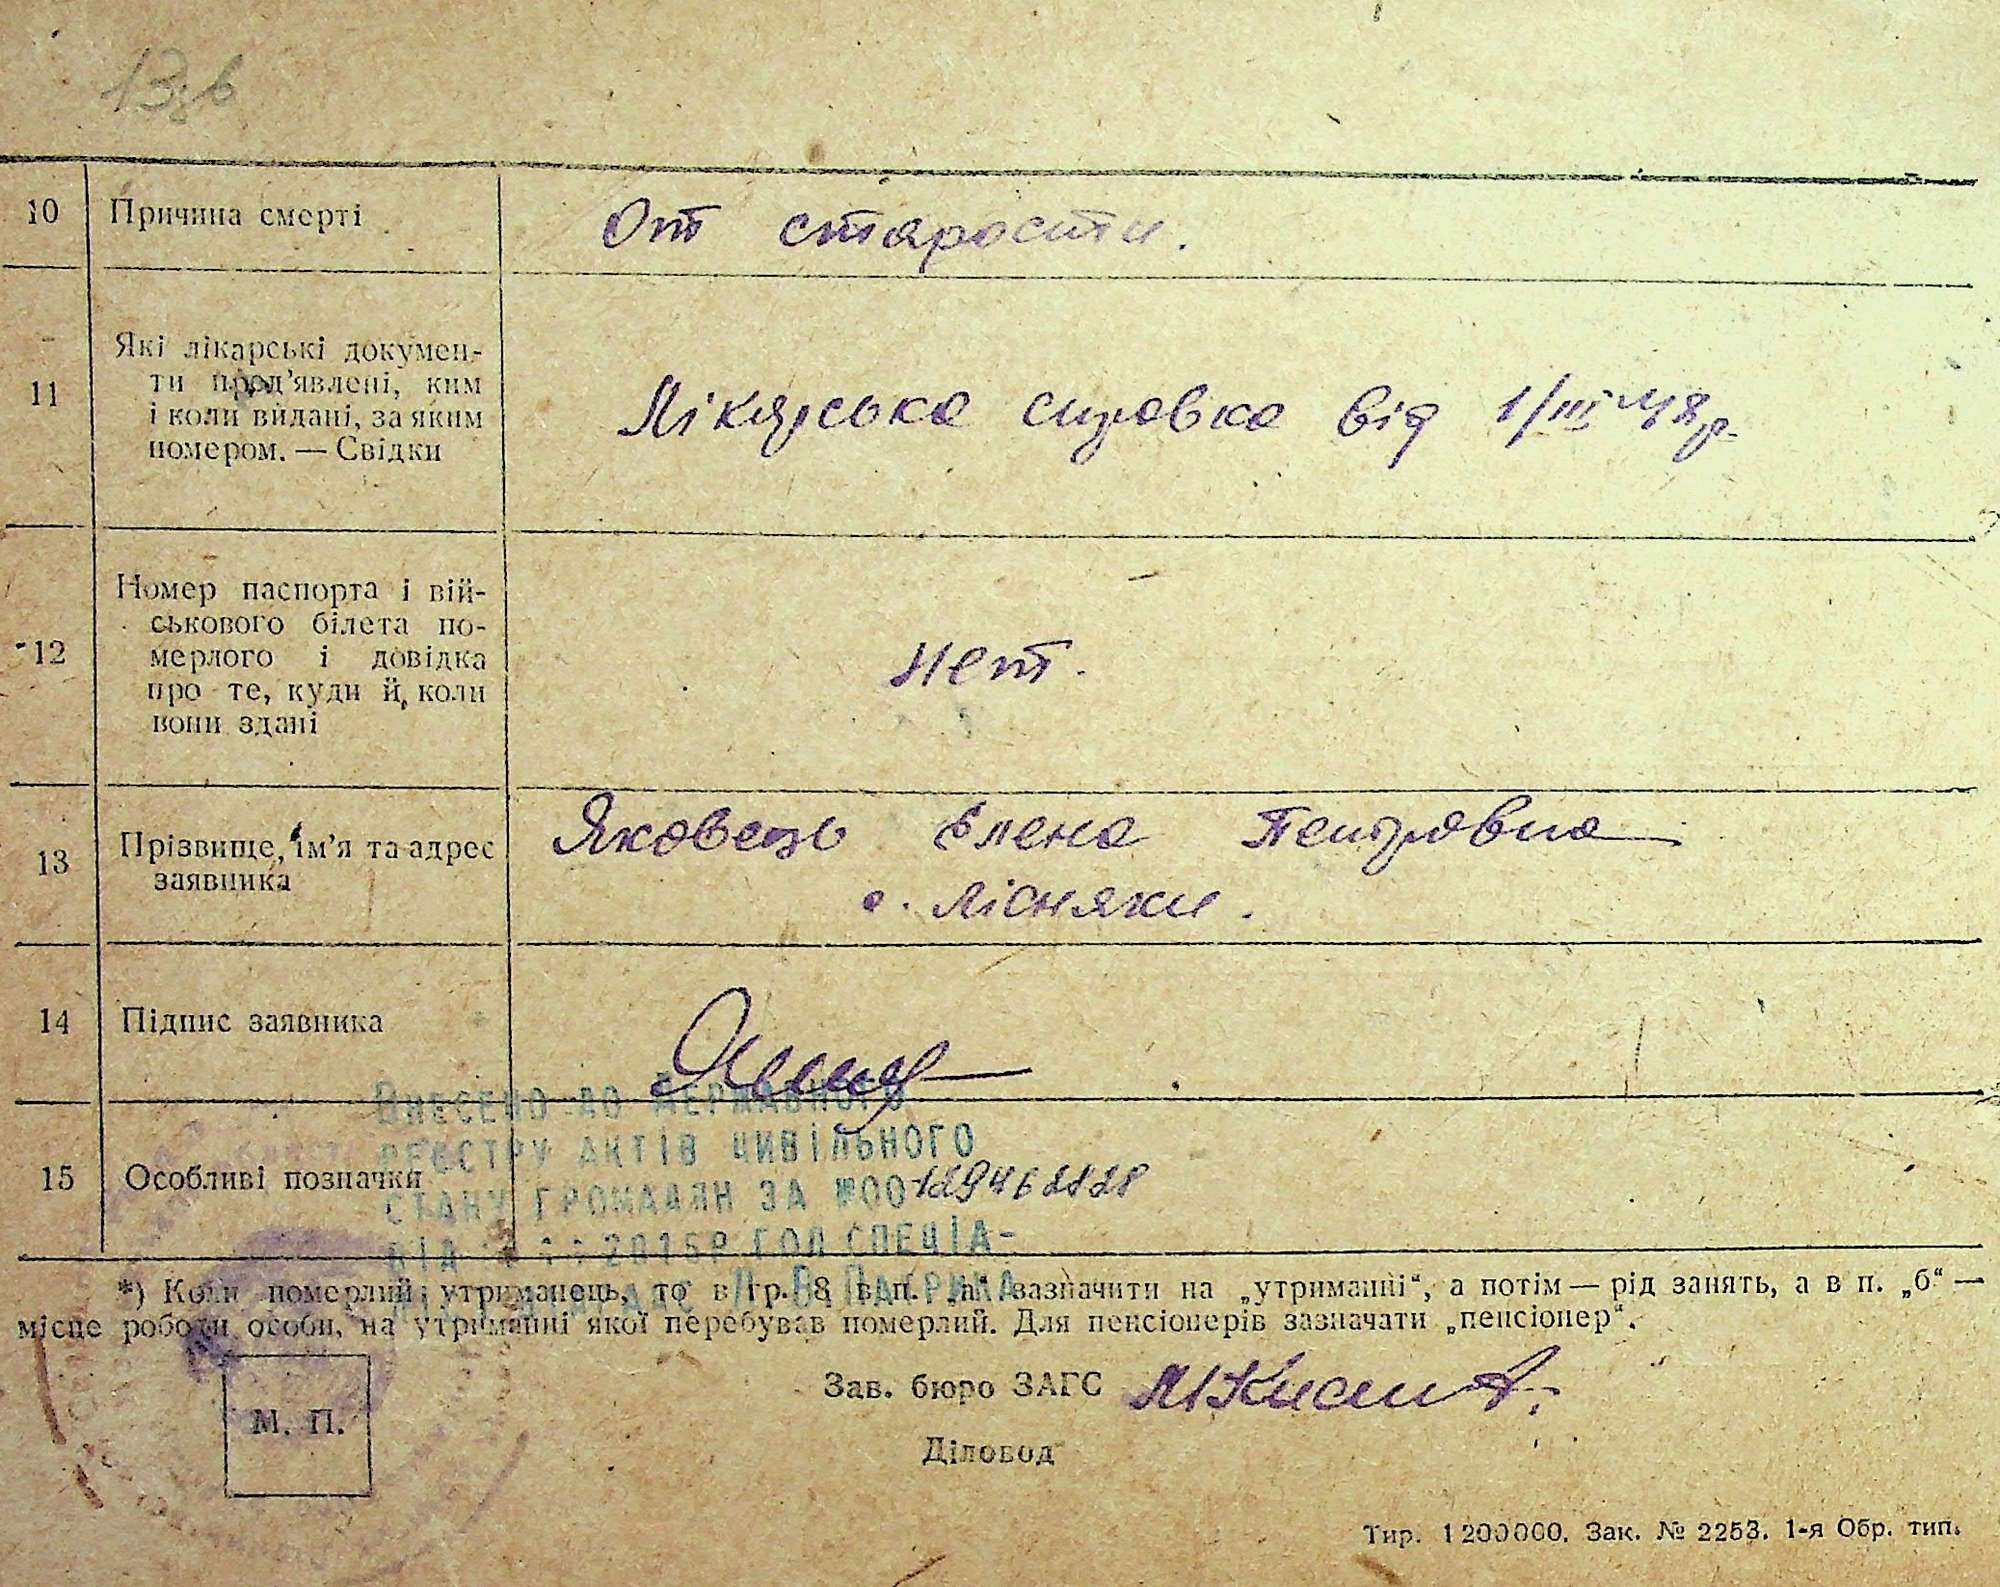 10 Причина смерті От старости.
11 Які лікарські докумен-
ти пред'явлені, ким
і коли видані, за яким
номером. — Свідки
Лікарська справка від 1/III-48 р.
12 Номер паспорта і вій-
ськового білета по-
мерлого і довідка
про те, куди й коли
вони здані
нет.
13 Прізвище, ім'я та адрес
заявника
Яковець Елена Петровна
с. Лісняки.
14 Підпис заявника
Внесено до Державного
реєстру актів цивільного
15 Особливі позначки
стану громадян за №00129462128
від 2015р гол спеціа-
*) Коли померлий утриманець, то в гр. 8 в п. „а“ зазначити на „утриманні“, а потім — рід занять, а в п. „б“ —
місце роботи особи, на утриманні якої перебував померлий. Для пенсіонерів зазначати „пенсіонер“.
Зав. бюро ЗАГС
М. П.
Діловод
Тир. 1200000. Зак. № 2253. 1-я Обр. тип.